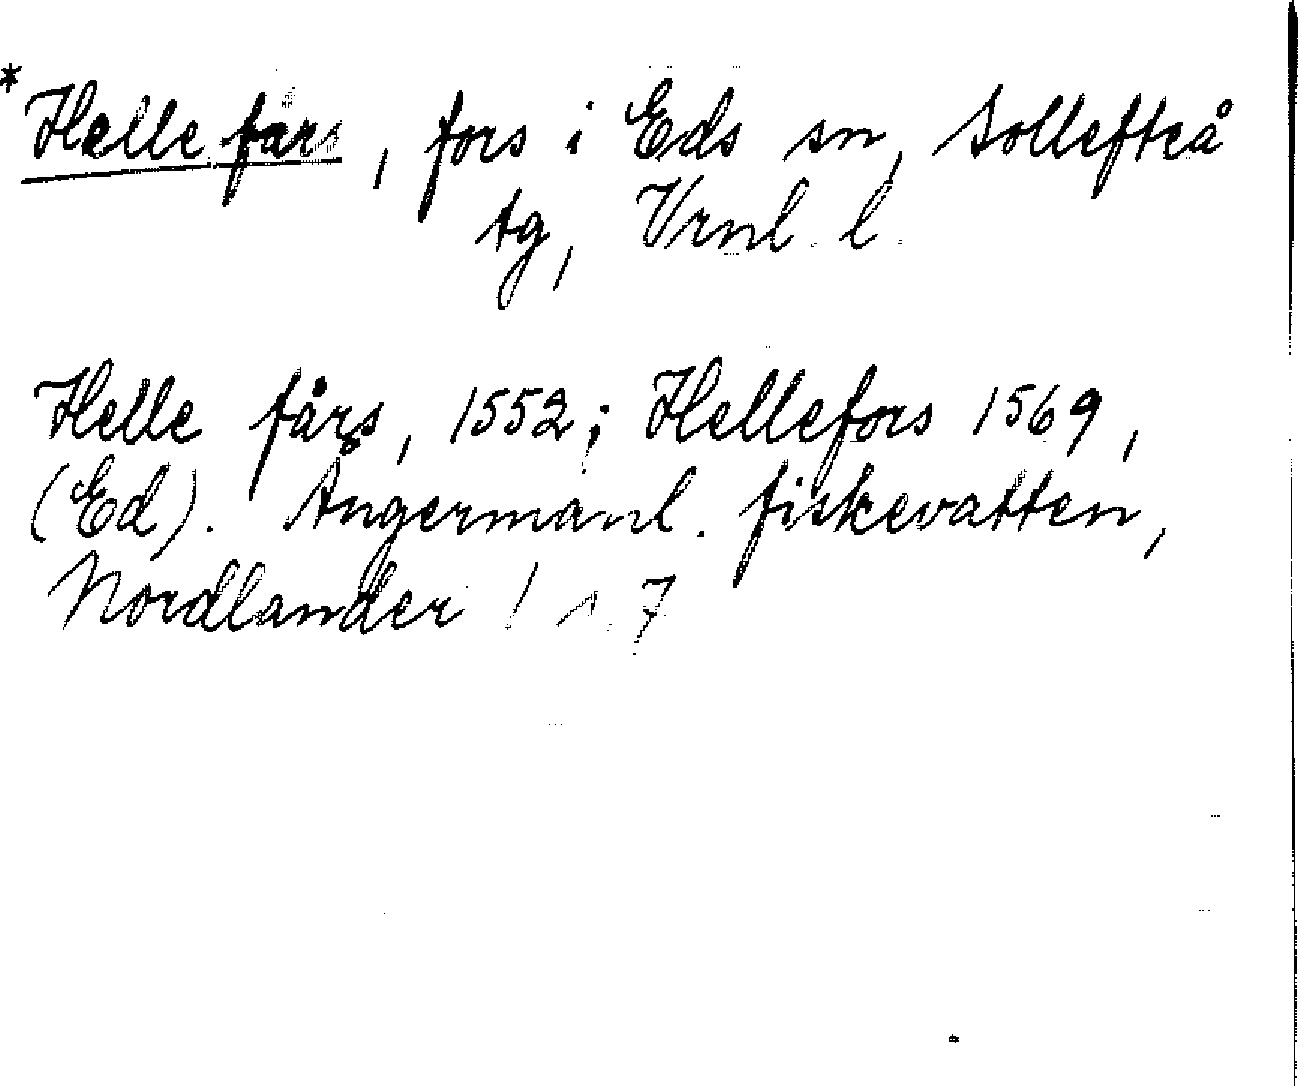 *Helle fårs, fors i Eds sn, Sollefteå
tg, Vrnl. l.
Helle fårs, 1552; Hellefors 1569,
(Ed). Ångermanl. fiskevatten,
Nordlander 1 s. 7